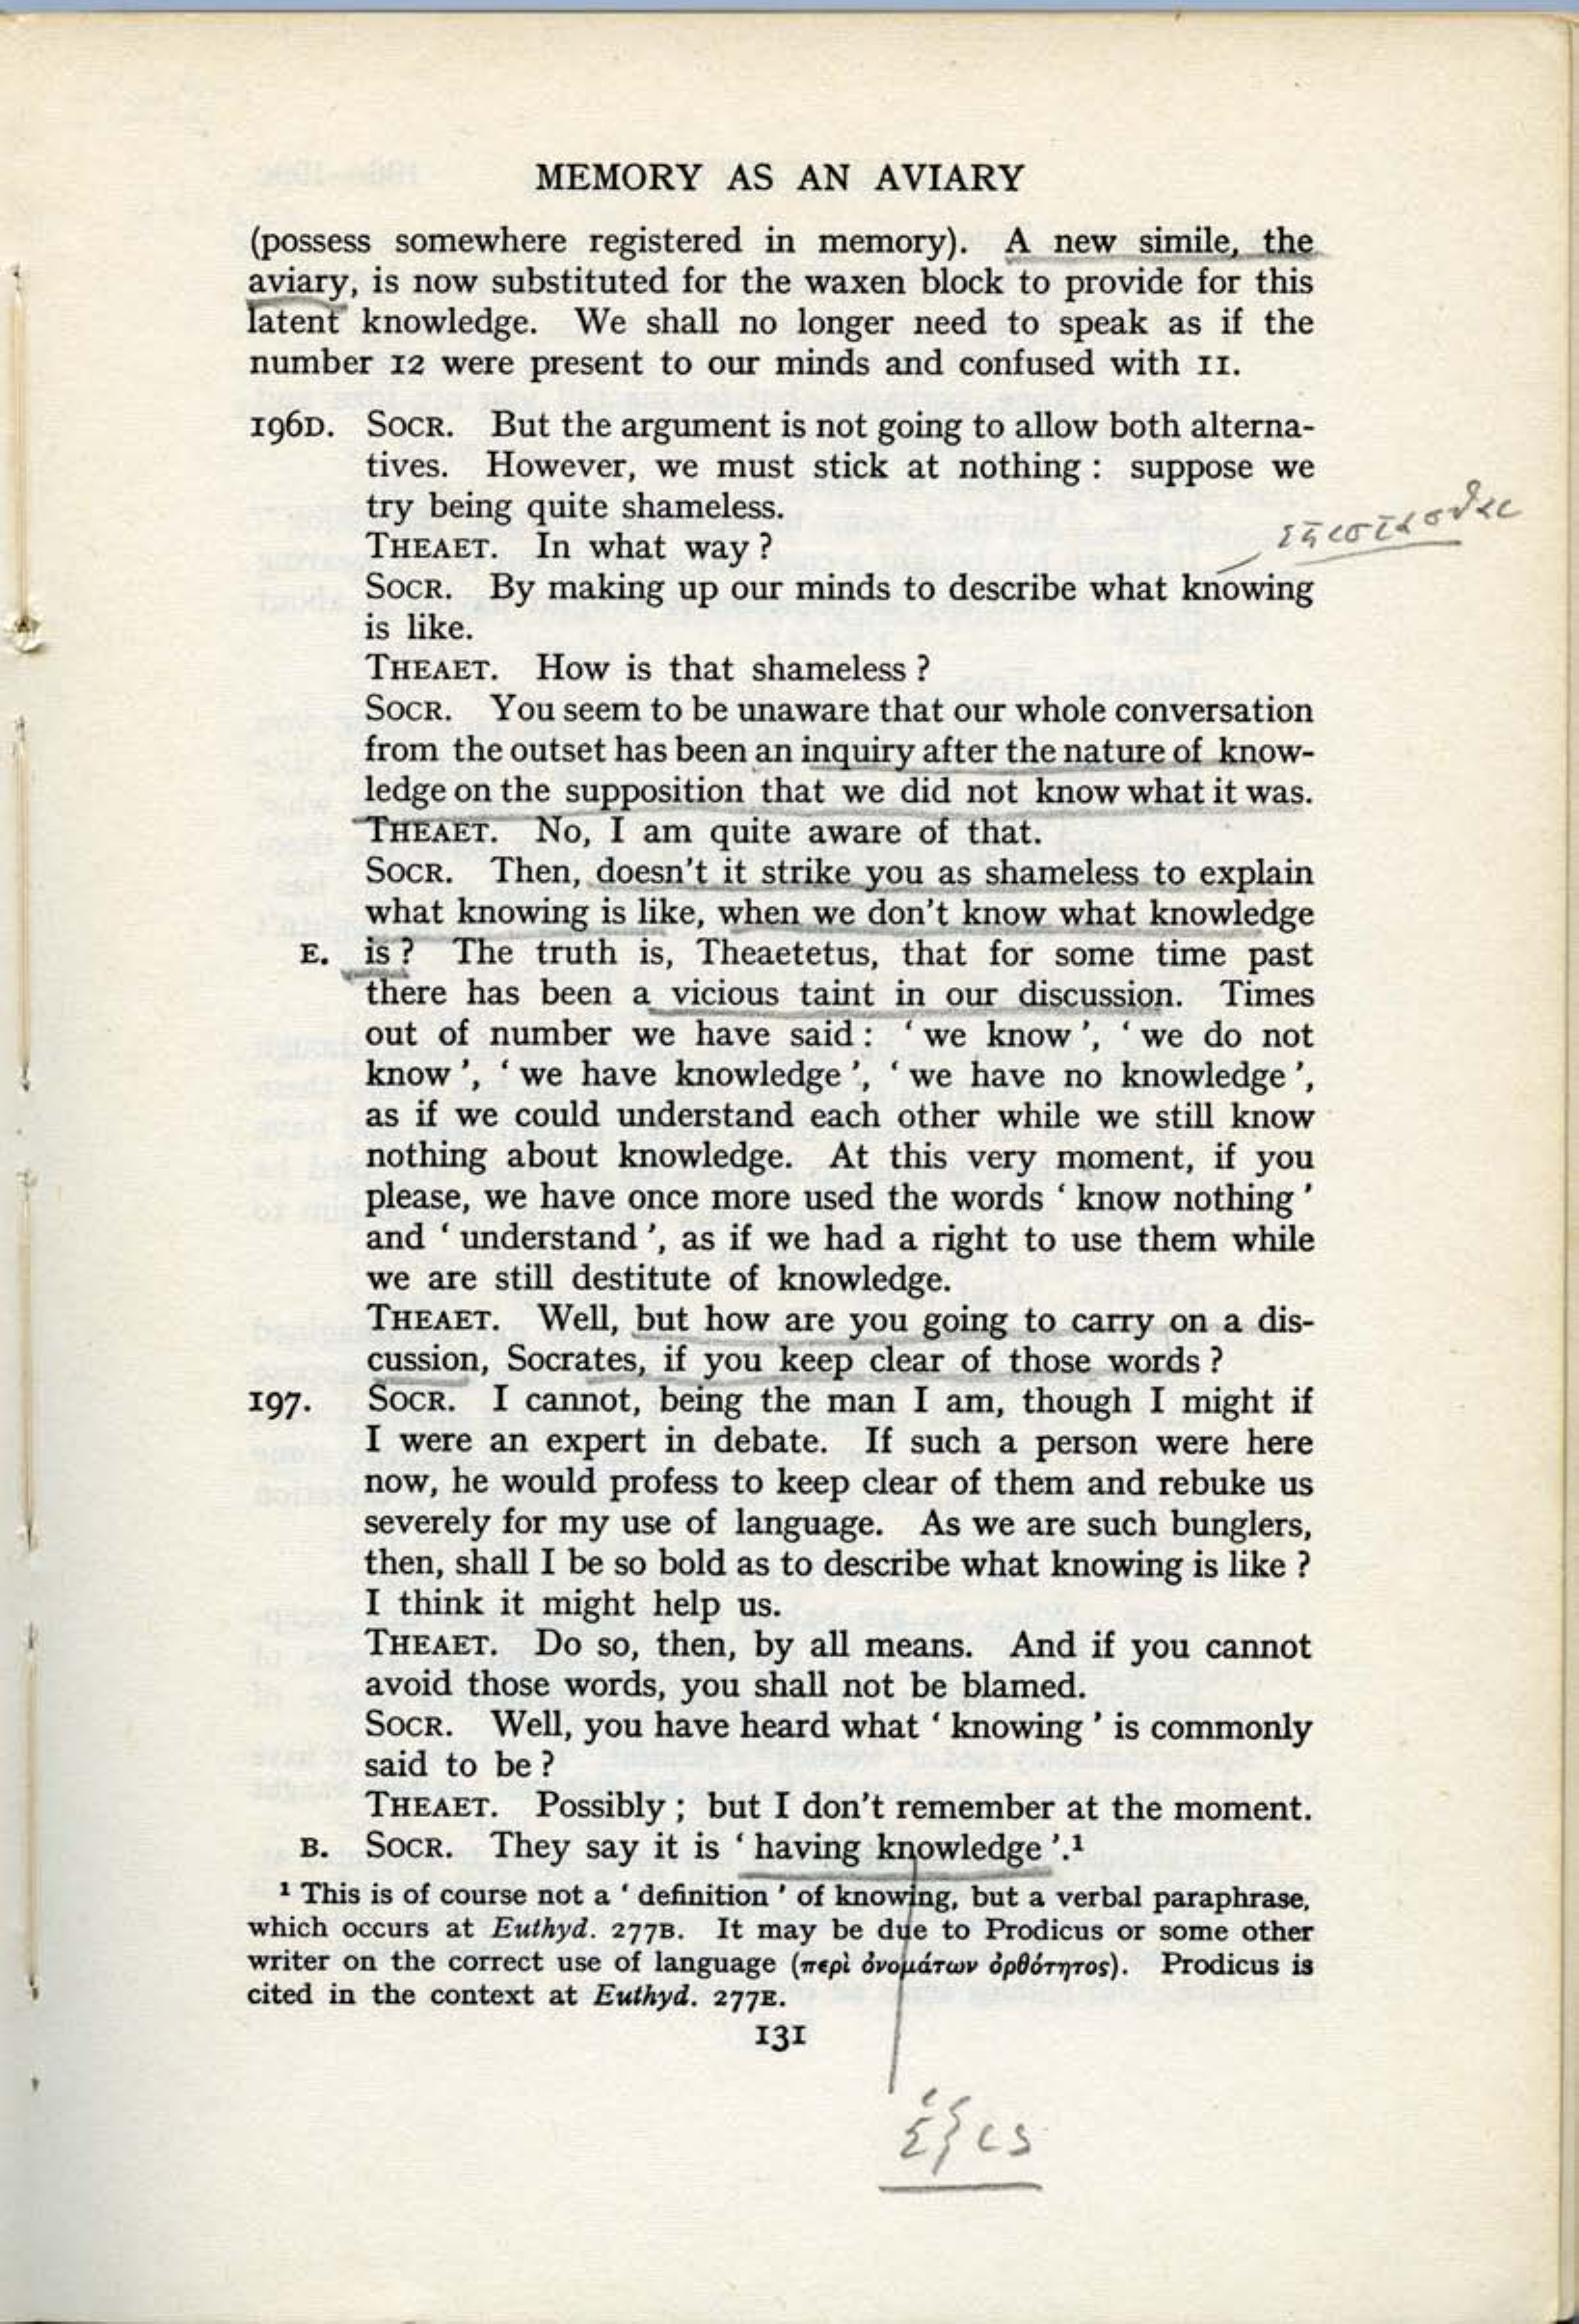 MEMORY AS AN AVIARY
(possess somewhere registered in memory). A new simile, the
aviary, is now substituted for the waxen block to provide for this
latent knowledge. We shall no longer need to speak as if the
number 12 were present to our minds and confused with 11.
196D. SOCR. But the argument is not going to allow both alterna-
tives. However, we must stick at nothing : suppose we
try being quite shameless.
THEAET. In what way ?
ἐπίστασθαι
SOCR. By making up our minds to describe what knowing
is like.
THEAET. How is that shameless ?
SOCR. You seem to be unaware that our whole conversation
from the outset has been an inquiry after the nature of know-
ledge on the supposition that we did not know what it was.
THEAET. No, I am quite aware of that.
SOCR. Then, doesn't it strike you as shameless to explain
what knowing is like, when we don't know what knowledge
E. is ? The truth is, Theaetetus, that for some time past
there has been a vicious taint in our discussion. Times
out of number we have said : ‘ we know ’, ‘ we do not
know ’, ‘ we have knowledge ’, ‘ we have no knowledge ’,
as if we could understand each other while we still know
nothing about knowledge. At this very moment, if you
please, we have once more used the words ‘ know nothing ’
and ‘ understand ’, as if we had a right to use them while
we are still destitute of knowledge.
THEAET. Well, but how are you going to carry on a dis-
cussion, Socrates, if you keep clear of those words ?
197. SOCR. I cannot, being the man I am, though I might if
I were an expert in debate. If such a person were here
now, he would profess to keep clear of them and rebuke us
severely for my use of language. As we are such bunglers,
then, shall I be so bold as to describe what knowing is like ?
I think it might help us.
THEAET. Do so, then, by all means. And if you cannot
avoid those words, you shall not be blamed.
SOCR. Well, you have heard what ‘ knowing ’ is commonly
said to be ?
THEAET. Possibly ; but I don't remember at the moment.
B. SOCR. They say it is ‘ having knowledge ’.¹
¹ This is of course not a ‘ definition ’ of knowing, but a verbal paraphrase,
which occurs at Euthyd. 277B. It may be due to Prodicus or some other
writer on the correct use of language (περὶ ὀνομάτων ὀρθότητος). Prodicus is
cited in the context at Euthyd. 277E.
131
ἕξις